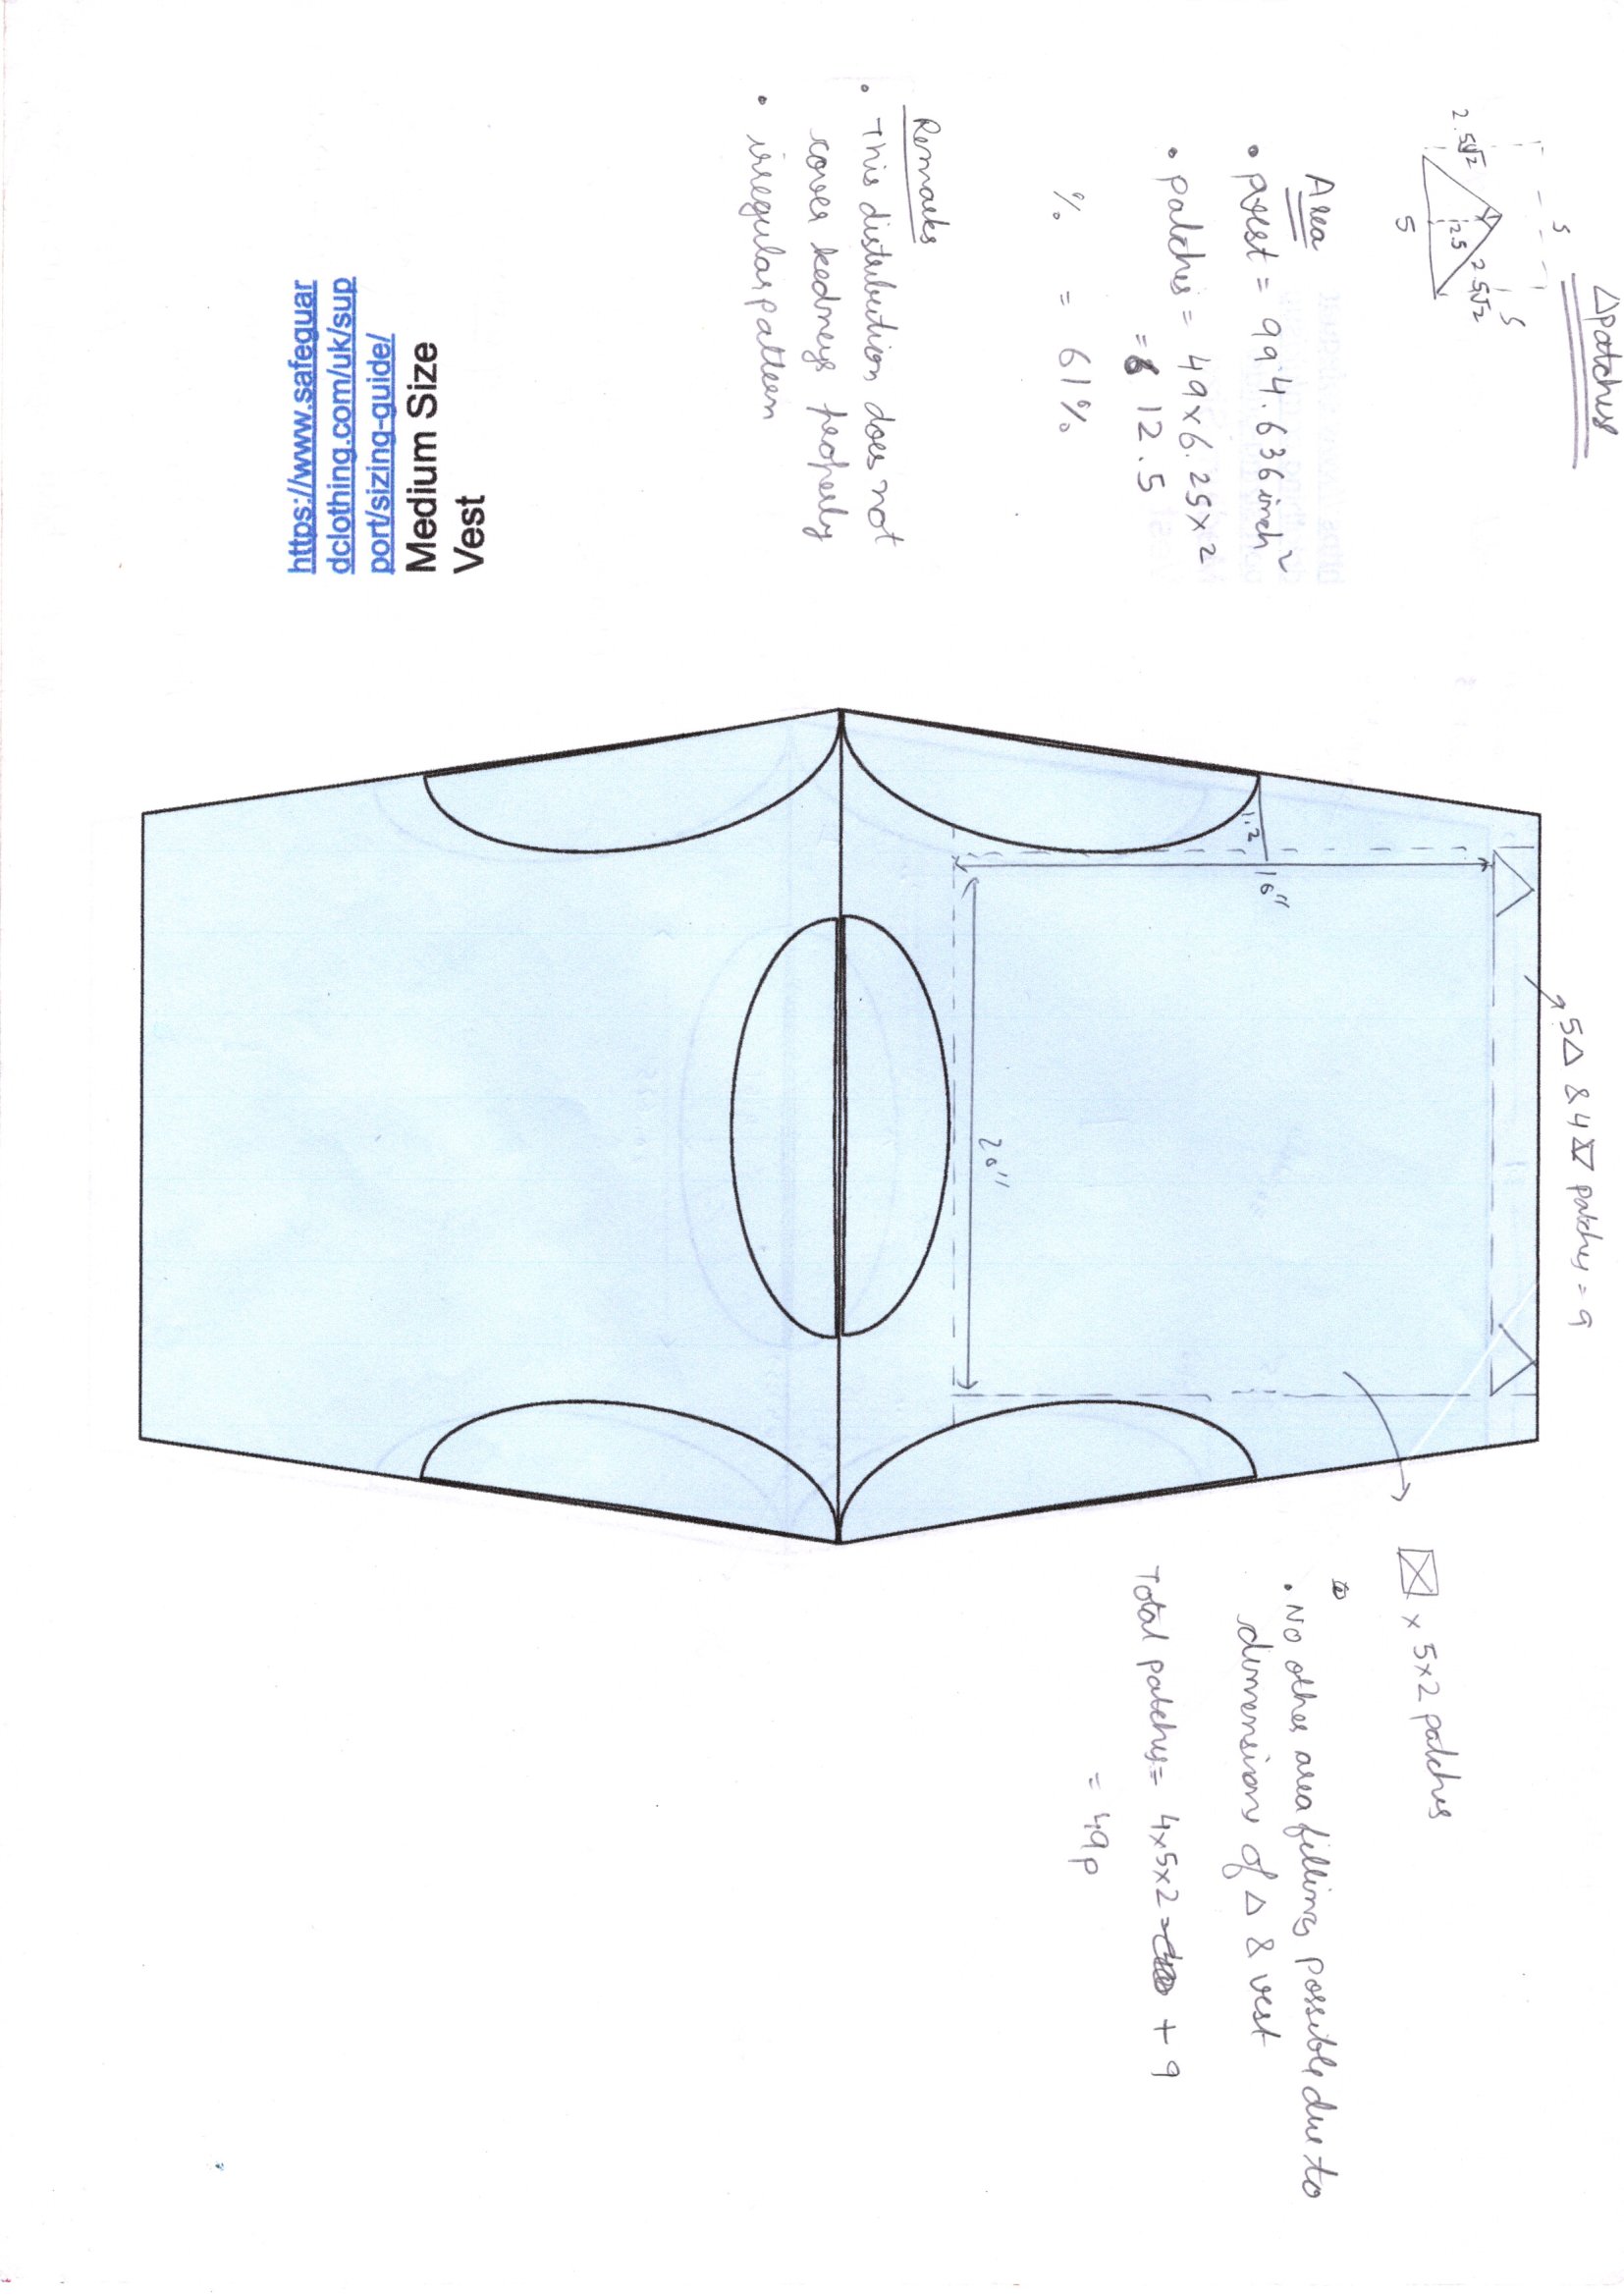 △patches
5
5
2.5√2
2.5√2
2.5
5
Area
• vest = 994.636 inch²
• patches = 49x6.25x2
= 612.5
% = 61%
Remarks
• This distribution does not
cover kedneys properly
• irregular pattern
5△ & 4▽ patches = 9
1.2
16"
20"
x 5x2 patches
• No other area filling possible due to
dimensions of △ & vest
Total patches = 4x5x2 + 9
= 49p
https://www.safeguar
dclothing.com/uk/sup
port/sizing-guide/
Medium Size
Vest